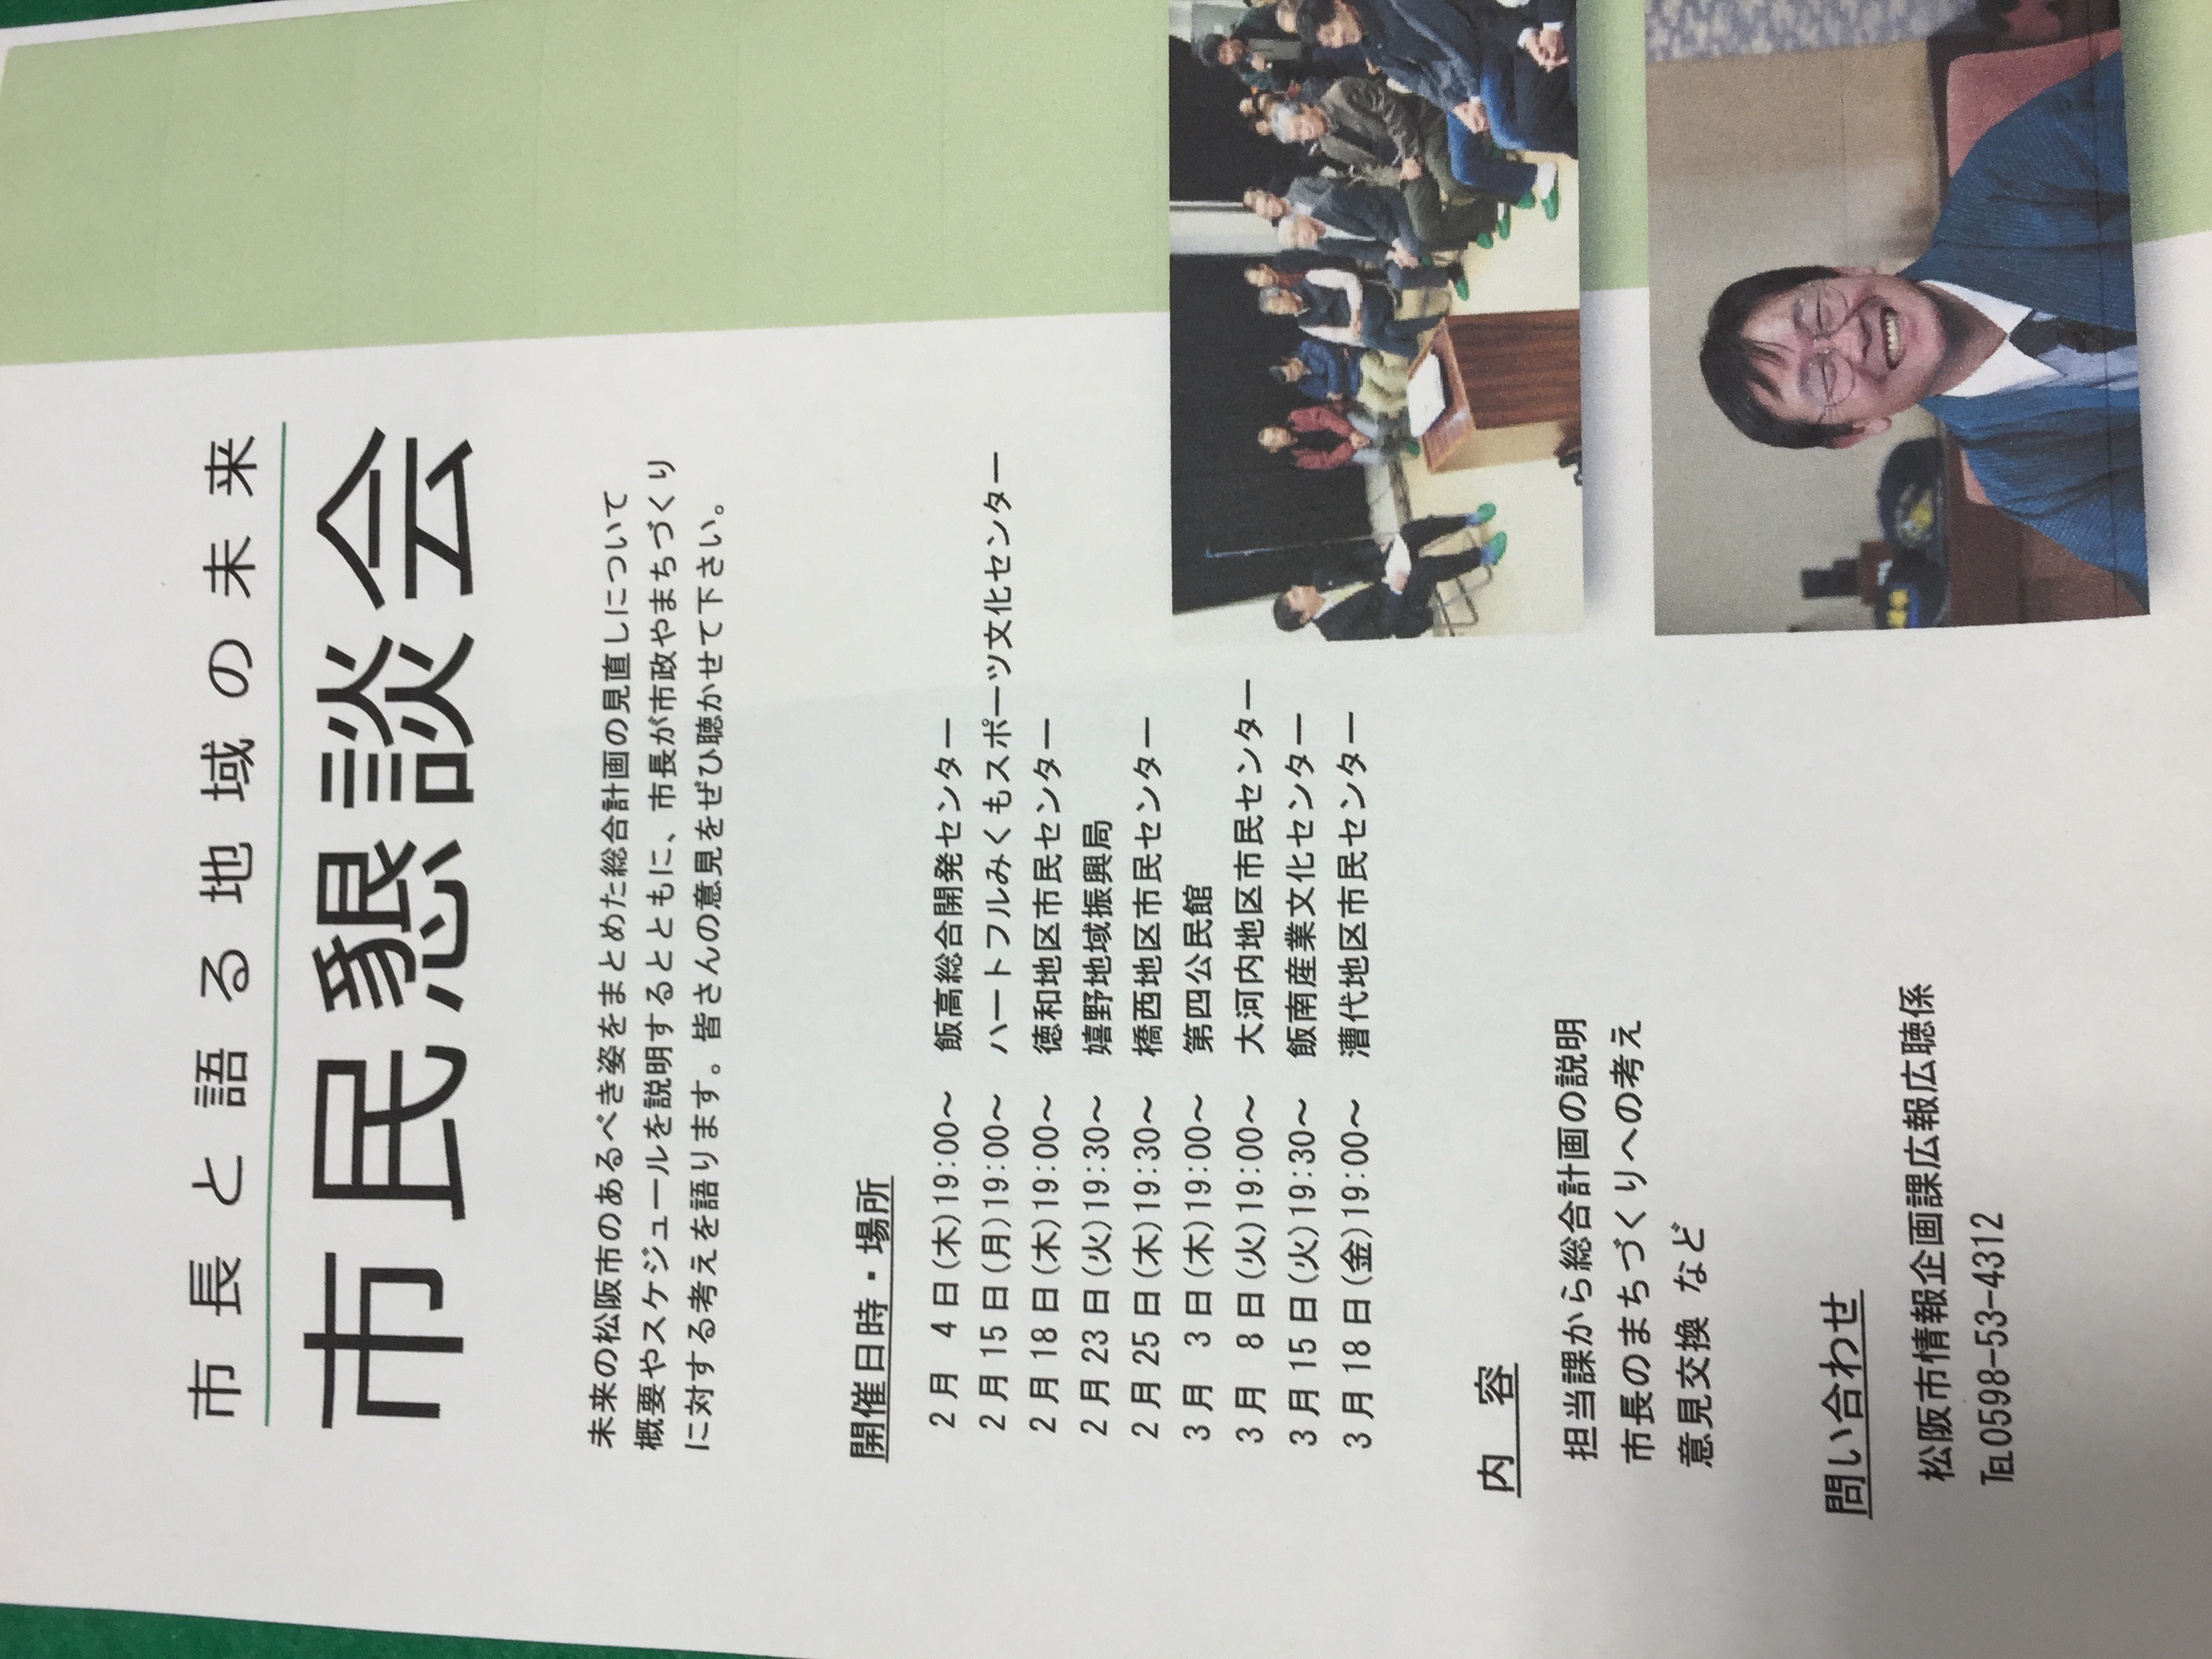 市長と語る地域の未来
市民懇談会
未来の松阪市のあるべき姿をまとめた総合計画の見直しについて
概要やスケジュールを説明するとともに、市長が市政やまちづくり
に対する考えを語ります。皆さんの意見をぜひ聴かせて下さい。
開催日時・場所
2月 4日(木)19:00～ 飯高総合開発センター
2月15日(月)19:00～ ハートフルみくもスポーツ文化センター
2月18日(木)19:00～ 徳和地区市民センター
2月23日(火)19:30～ 嬉野地域振興局
2月25日(木)19:30～ 橋西地区市民センター
3月 3日(木)19:00～ 第四公民館
3月 8日(火)19:00～ 大河内地区市民センター
3月15日(火)19:30～ 飯南産業文化センター
3月18日(金)19:00～ 漕代地区市民センター
内 容
担当課から総合計画の説明
市長のまちづくりへの考え
意見交換 など
問い合わせ
松阪市情報企画課広報広聴係
℡0598-53-4312